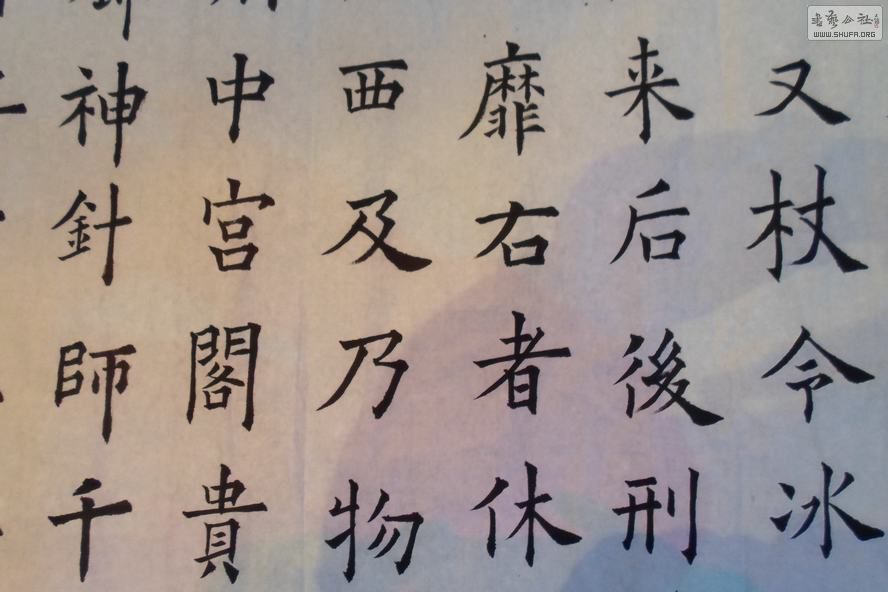 又杖令冰
来后後刑
靡右者休
西及乃物
申宫閣貴
神針師千
書藝公社
WWW.SHUFA.ORG